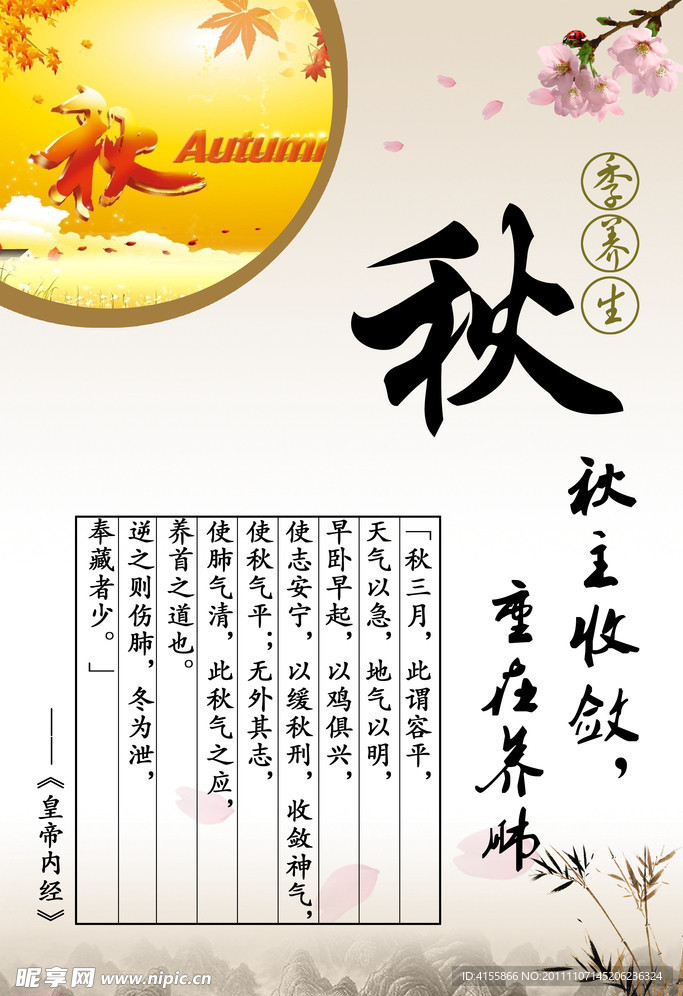 秋
Autumn
季养生
秋
秋主收敛，
重在养肺
「秋三月，此谓容平，
天气以急，地气以明，
早卧早起，以鸡俱兴，
使志安宁，以缓秋刑，收敛神气，
使秋气平；无外其志，
使肺气清，此秋气之应，
养首之道也。
逆之则伤肺，冬为泄，
奉藏者少。」
——《皇帝内经》
昵享网 www.nipic.cn
ID:4155866 NO:20111107145206236324